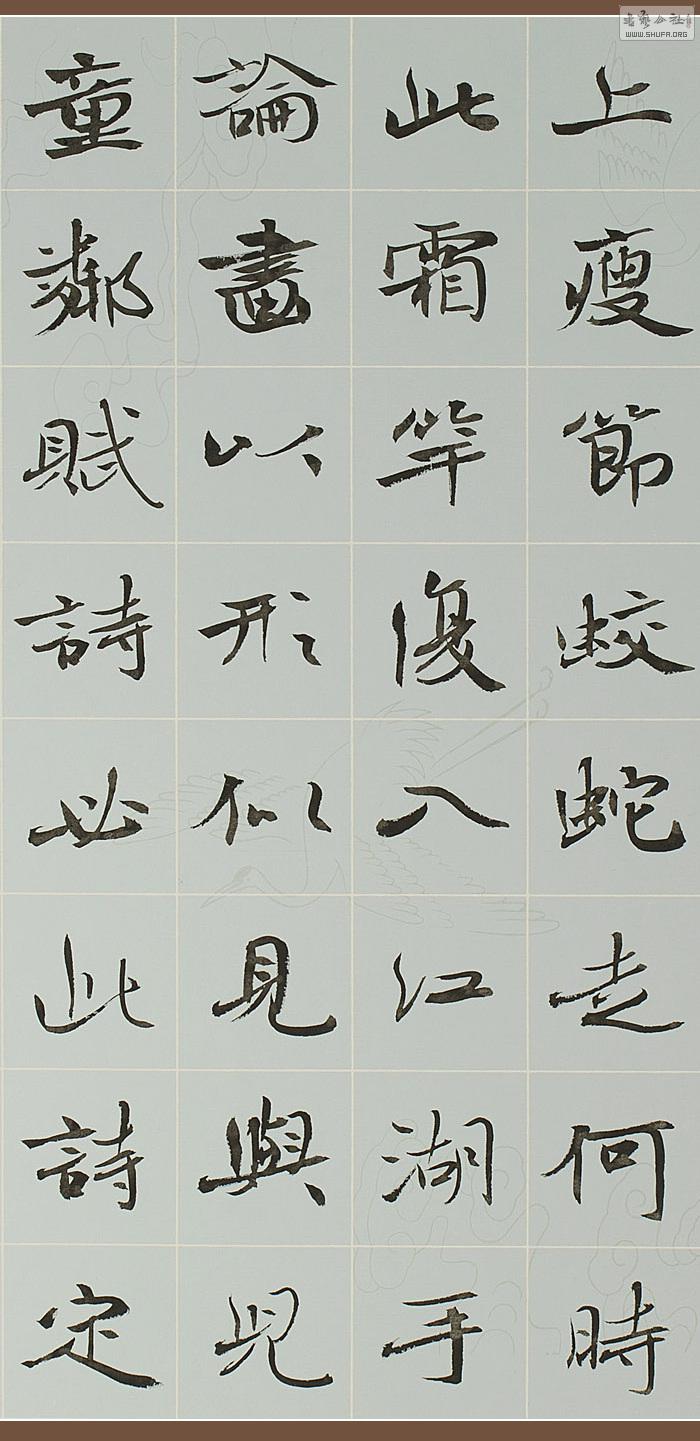 上瘦節蛟蛇走何時
此霜竿復入江湖手
論畫以形似見與兒
童鄰賦詩必此詩定
书艺公社
WWW.SHUFA.ORG